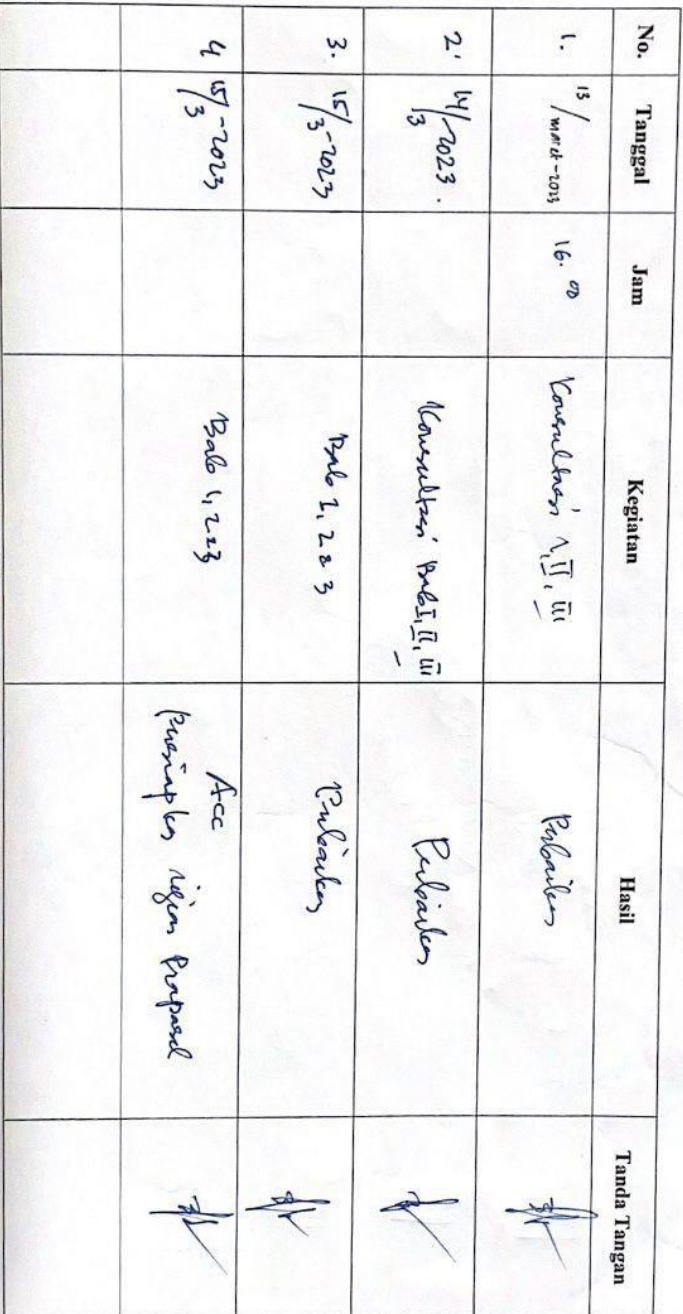 No. Tanggal Jam Kegiatan Hasil Tanda Tangan
1. 13/maret-2023 16.00 Konsultasi I, II, III Perbaikan
2. 14/3-2023. Konsultasi Bab I, II, III Perbaikan
3. 15/3-2023 Bab 1, 2 & 3 Perbaikan
4 15/3-2023 Bab 1, 2 & 3 Acc
persiapkan ujian Proposal